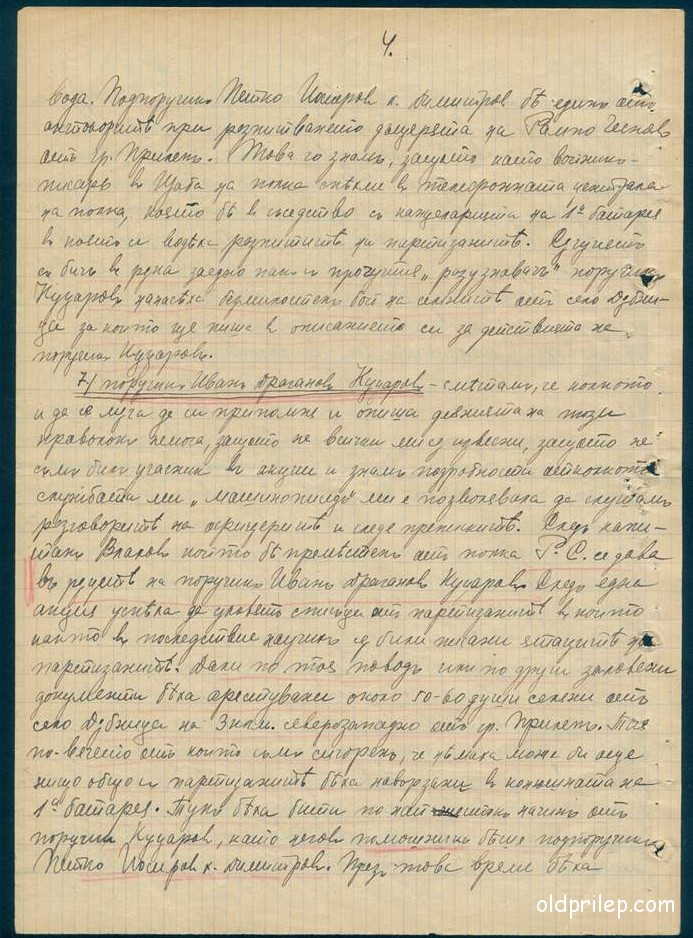 4.
вода. Подпоручикъ Петко Йосифов х. Димитров бѣ единъ отъ
при разпитването дъщерята на Рампо
отъ гр. Прилепъ. Това го знамъ, защото като войникъ-
писарь в Щаба на полка спѣхме в телефонната централа
на полка, която бѣ в съседство съ канцеларията на 1а батарея
в която се водѣха разпитите на партизанитѣ.
съ бичъ в ръка заедно пакъ с прочутия „разузнавачъ" поручикъ
Куцаровъ нанасѣха безмилостенъ бой на селянитѣ отъ село Дубни-
ца за които ще пиша в описанието си за действията на
поручик Куцаровъ.
7/ поручикъ Иванъ Драгановъ Куцаровъ - смѣтамъ, че колкото
и да се мъча да си припомня и опиша деянията на този
немога, защото не всички ми са известни, защото не
съмъ билъ участник в акции и знамъ подробности отколкото
службата ми „машинописецъ" ми е позволявала да слушамъ
разговоритѣ на офицеритѣ и следъ Следъ капи-
танъ Влаховъ който бѣ промѣстенъ отъ полка Р. С. се дава
въ рѫцетѣ на поручикъ Иванъ Драгановъ Куцаровъ Следъ една
акция успѣха да уловятъ списъци отъ партизанитѣ в които
както в последствие научихъ са били писани ятацитѣ на
партизанитѣ. Дали по тоя поводъ или по други заловени
документи бѣха арестувани около 50-60 души селяни отъ
село Дубница на 3 км. северозападно отъ гр. Прилепъ. Тия
по-вечето отъ които съмъ сигоренъ, че нѣмаха може би още
нищо общо с партизанитѣ бѣха навързани в конюшната на
1а батарея. Тукъ бѣха бити по най- начинъ отъ
поручикъ Куцаровъ, като неговъ помощникъ бѣше подпоручикъ
Петко Йосифов х. Димитровъ. Презъ това време бѣха
oldprilep.com